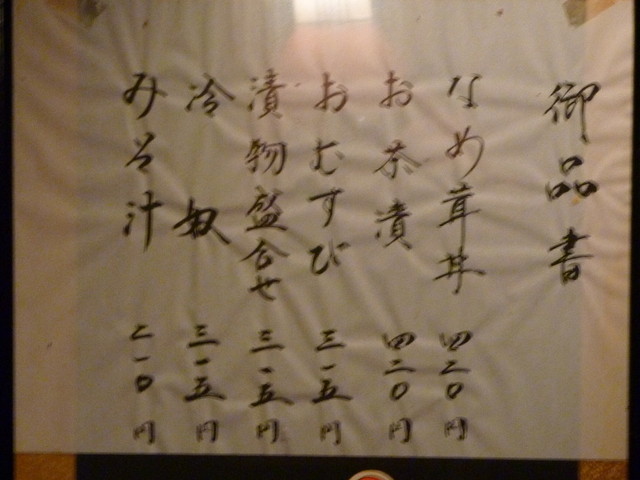 御品書
なめ茸丼 四二〇円
お茶漬 四二〇円
おむすび 三一五円
漬物盛合せ 三一五円
冷奴 三一五円
みそ汁 二一〇円